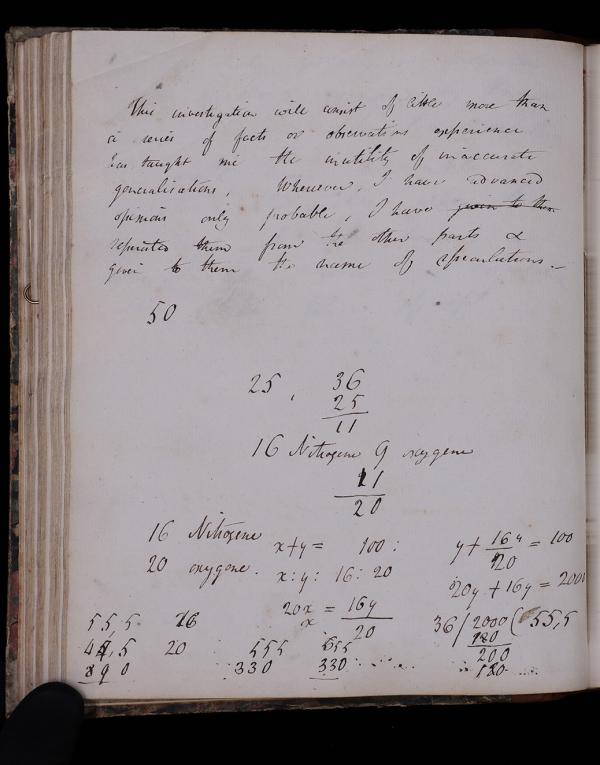 This investigation will consist of little more than
a series of facts or observations experience
has taught me the inutility of inaccurate
generalisations, Whenever, I have advanced
opinions only probable, I have given to them
separated them from the other parts &
given to them the name of speculations.—
50
25, 36
25
11
16 Nitrogene 9 oxygene
11
20
16 Nitrogene
20 oxygene.
x+y= 100:
x:y: 16:20
20x = 16y
x = 16y
20
y + 16y = 100
20
20y + 16y = 2000
36/2000(55,5
180
200
180
55,5 16
44,5 20
890
555 555
330 330